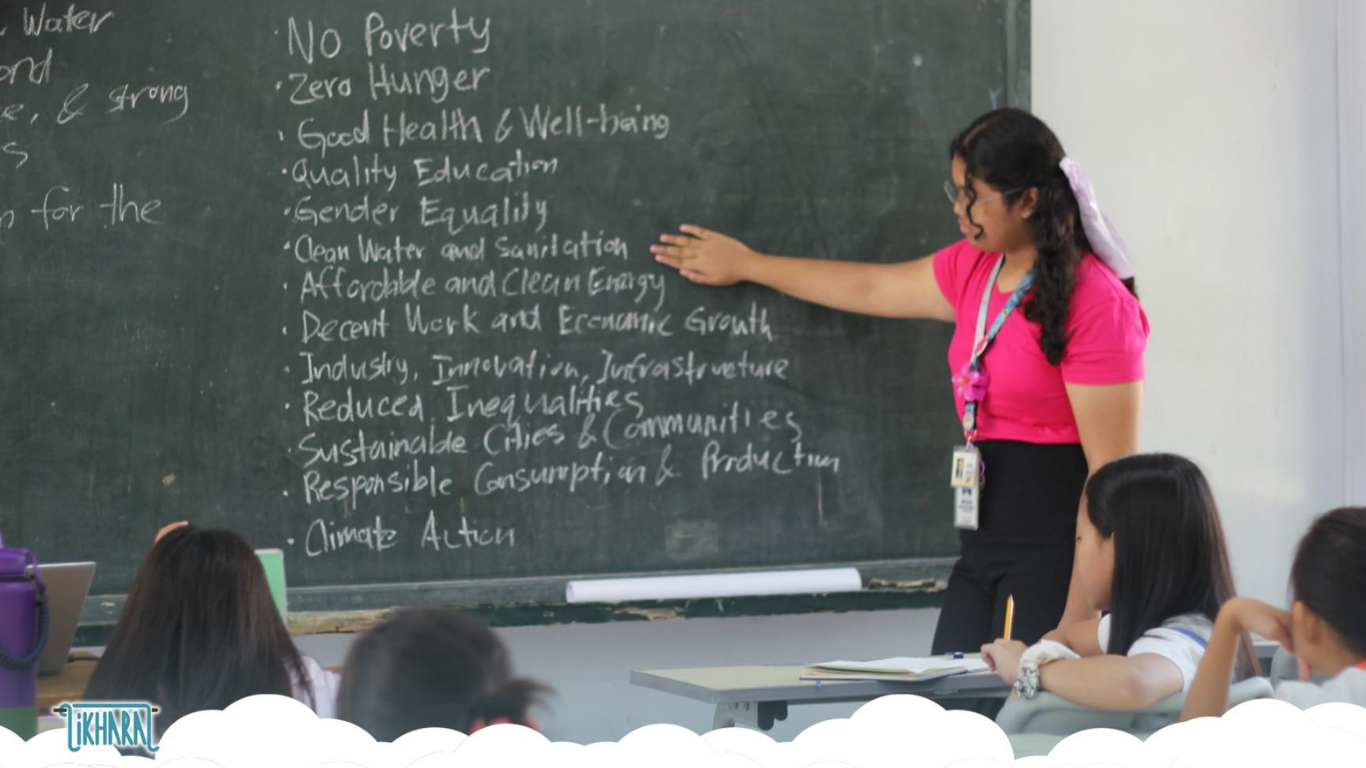 Water
ond
e, & strong
s
for the
· No Poverty
· Zero Hunger
· Good Health & Well-being
· Quality Education
· Gender Equality
· Clean Water and Sanitation
· Affordable and Clean Energy
· Decent Work and Economic Growth
· Industry, Innovation, Infrastructure
· Reduced Inequalities
· Sustainable Cities & Communities
· Responsible Consumption & Production
· Climate Action
LIKHARAL